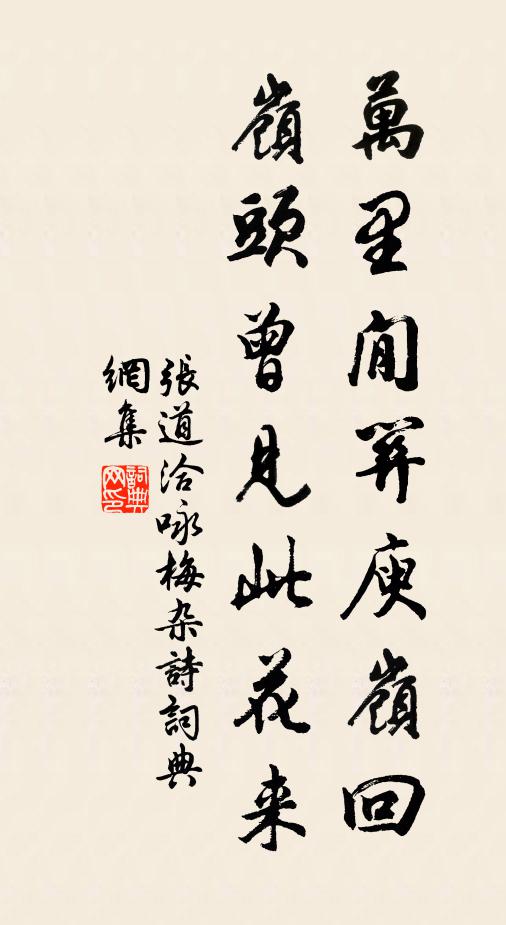 萬里閒關庾嶺回
嶺頭曾見此花来
張道洽咏梅杂詩詞典
網集
詞典
网印